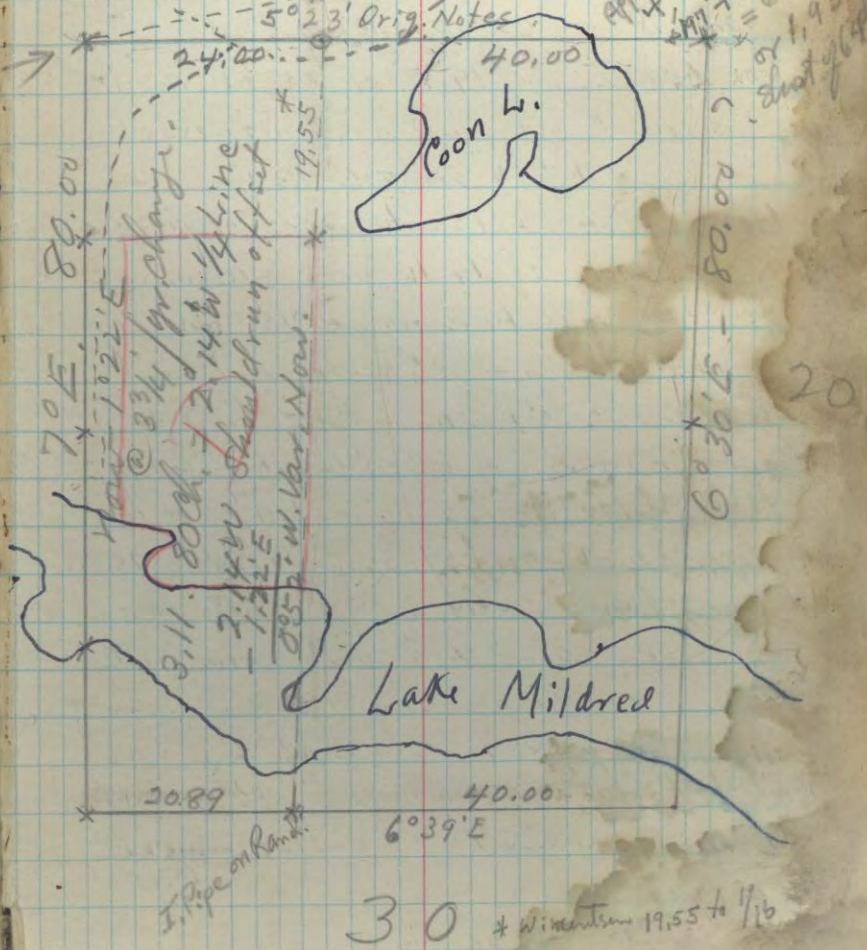 5°23' Orig. Notes
24.00
40.00
Coon L.
19.55*
80.00
7° E.
Now 1°22' E
@ 3 3/4'/yr. Change.
3.11. 80 Ch. = 2°14' W 1/4 Line
Should run offset
- 2.14 W
1.22' E
0°52' W. Var. Now.
6° 30' E - 80.00
20
Lake Mildred
20.89
40.00
6°39' E
I. Pipe on Rand.
30
* 19.55 to 1/16